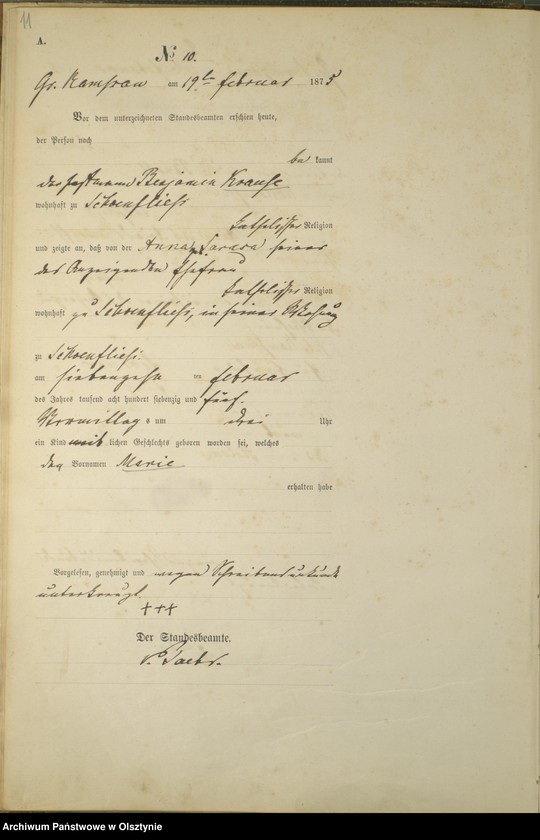 11
A.
№ 10.
Gr. Kamsrau am 19ten Februar 1875
Vor dem unterzeichneten Standesbeamten erschien heute,
der Person nach
be kannt
der Instmann Benjamin Krause
wohnhaft zu Schoenfließ
katholischer Religion
und zeigte an, daß von der Anna seiner
des Anzeigenden Ehefrau
katholischer Religion
wohnhaft zu Schoenfließ, in seiner Wohnung
zu Schoenfließ
am siebenzehn ten Februar
des Jahres tausend acht hundert siebenzig und fünf
Vormittags um drei Uhr
ein Kind weib lichen Geschlechts geboren worden sei, welches
den Vornamen Marie
erhalten habe
Vorgelesen, genehmigt und wegen Schreibensunkunde
unterkreuzt.
+++
Der Standesbeamte.
Archiwum Państwowe w Olsztynie